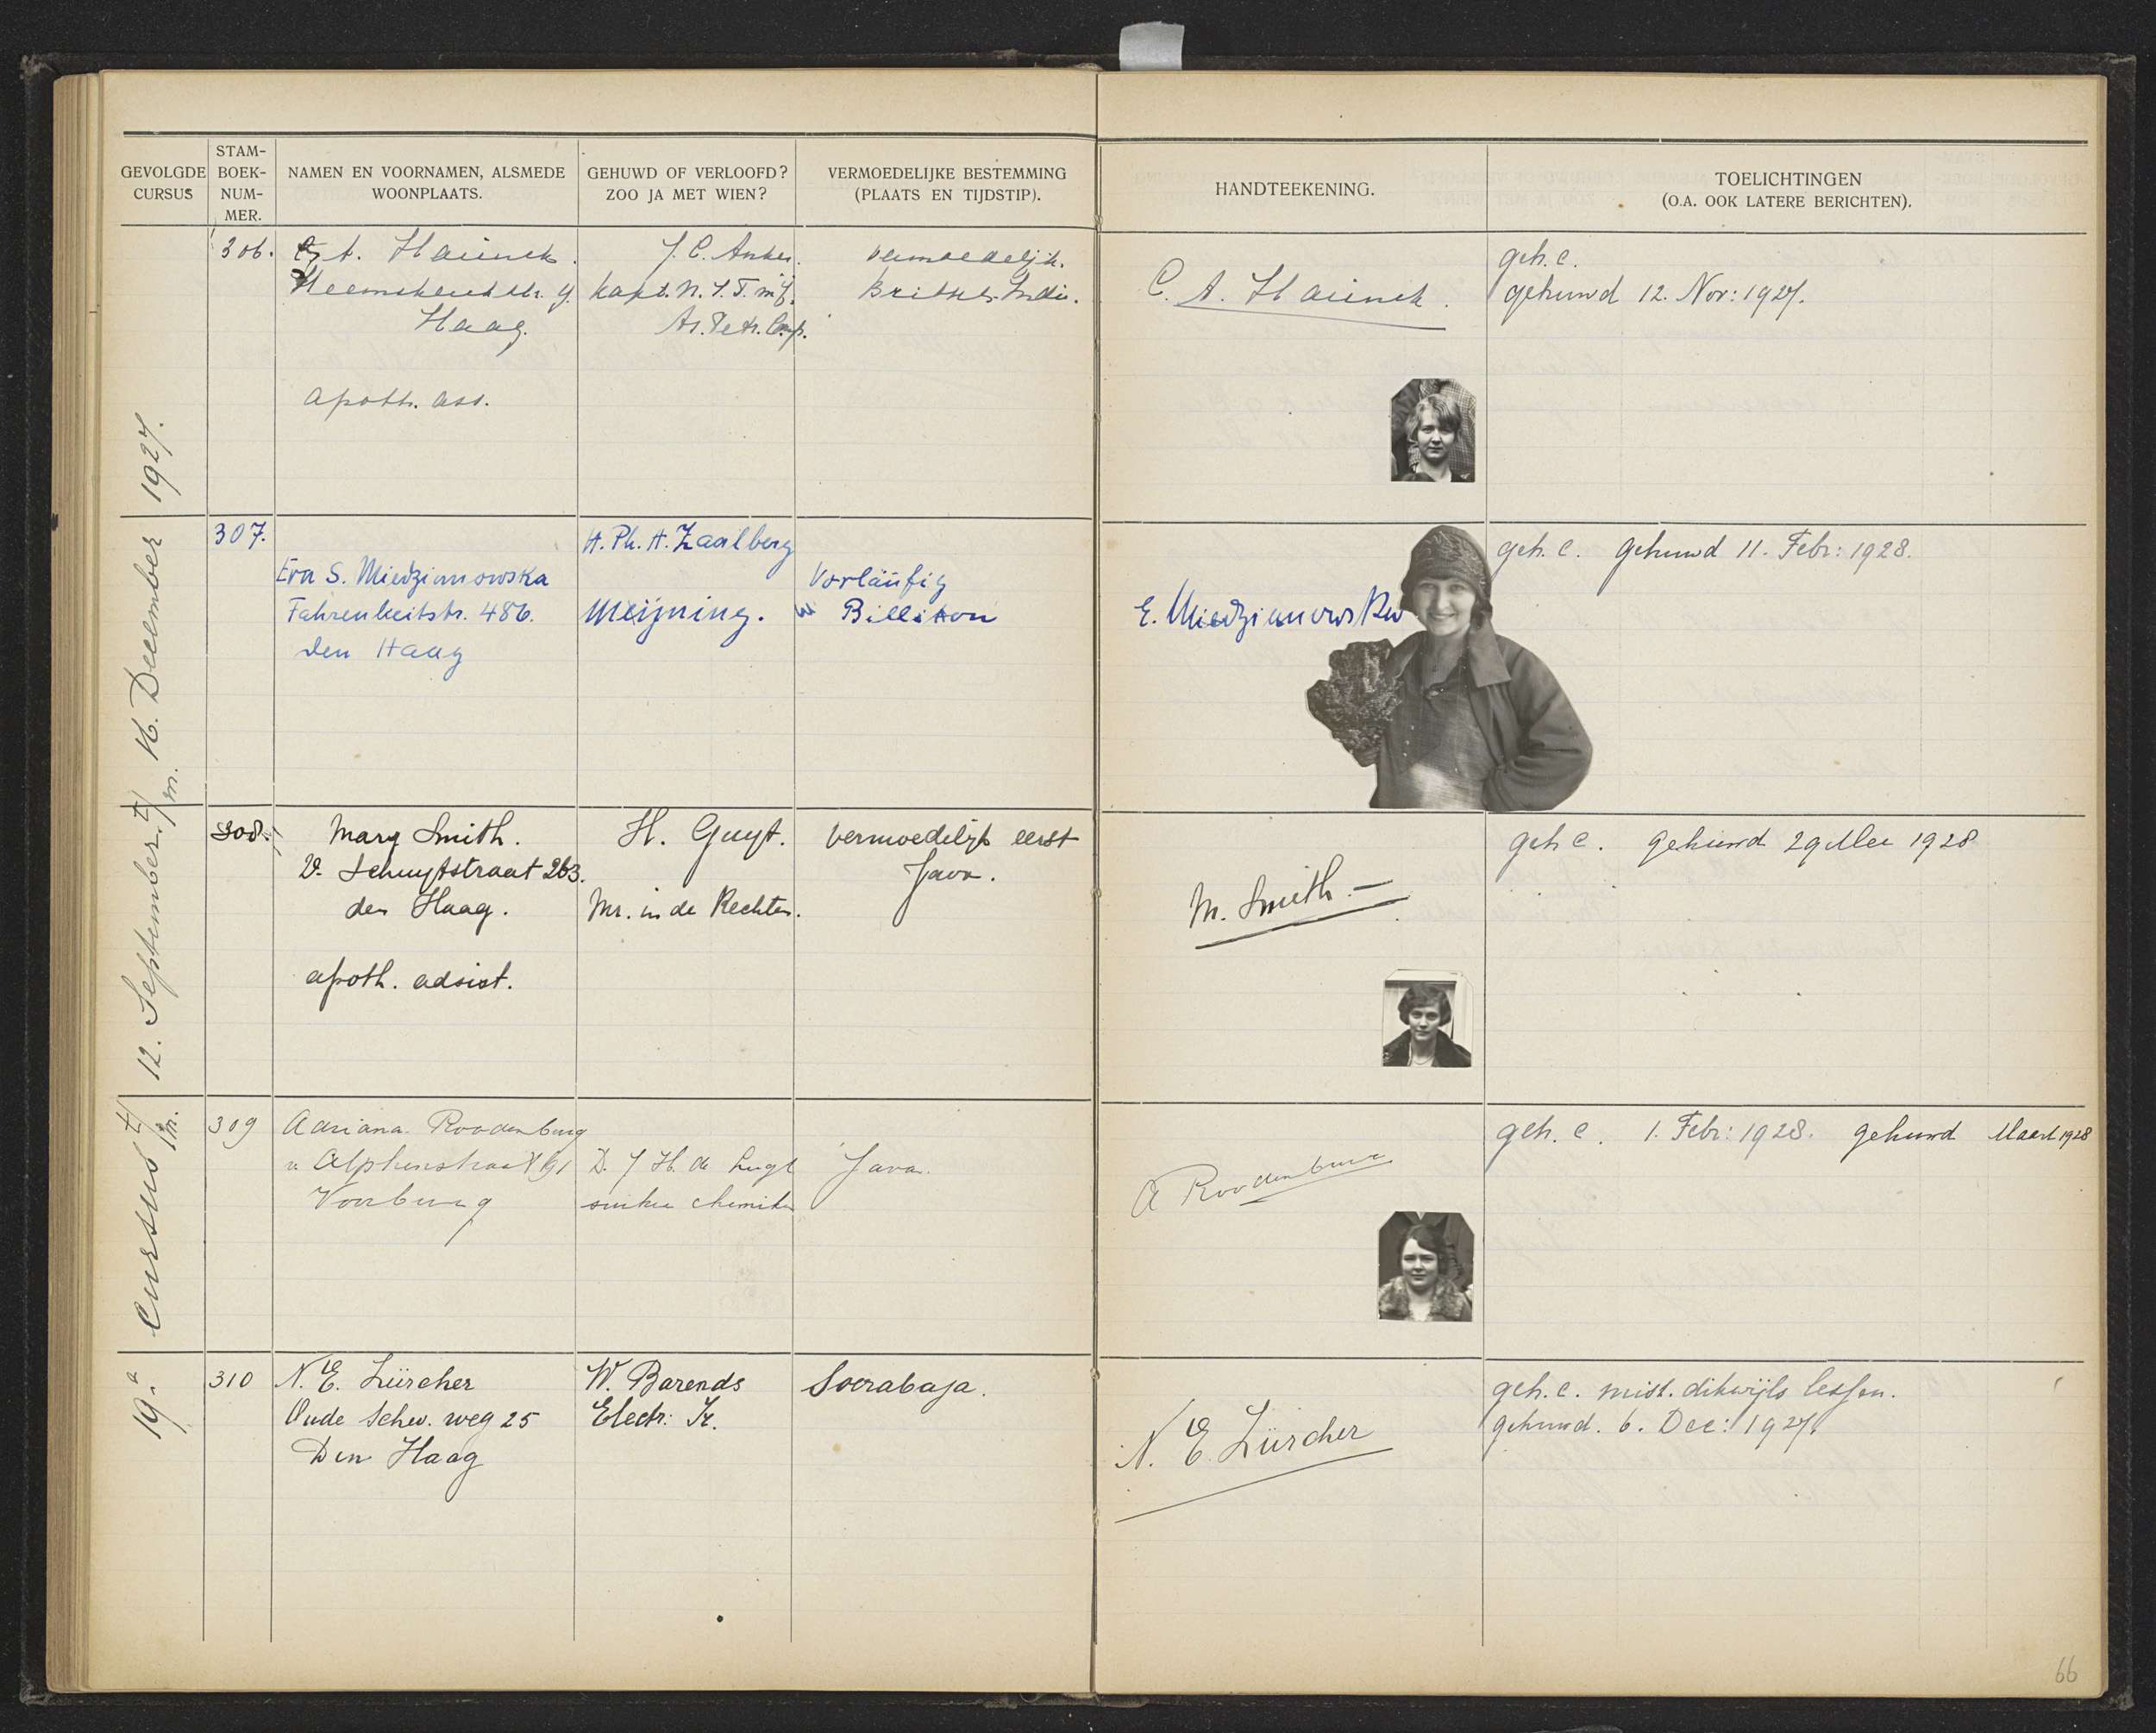 GEVOLGDE CURSUS
STAM-BOEK-NUM-MER.
NAMEN EN VOORNAMEN, ALSMEDE WOONPLAATS.
GEHUWD OF VERLOOFD? ZOO JA MET WIEN?
VERMOEDELIJKE BESTEMMING (PLAATS EN TIJDSTIP).
HANDTEEKENING.
TOELICHTINGEN (O.A. OOK LATERE BERICHTEN).
19e Cursus t/m. 12. September t/m. 16. December 1927.
306.
A. Haiinck.
Haag.
apoth. ass.
J. C. Anker.
Kapt. N. I. T. mij.
vermoedelijk.
Britsch-Indie.
C. A. Haiinck.
geh. c.
gehuwd 12. Nov: 1927.
307.
Eva S. Miedzianowska
Fahrenheitstr. 486.
den Haag
H. Ph. H. Zaalberg
Meijning.
Vorläufig
Billiton
E. Miedzianowska
geh. c. gehuwd 11. Febr: 1928.
308.
Mary Smith.
v. Schuytstraat 263.
den Haag.
apoth. adsist.
H. Guyt.
Mr. in de Rechten.
vermoedelijk eerst
Java.
M. Smith.—
geh c. gehuwd 29 Mei 1928
309
Adriana Roodenburg
v. Alphenstraat 91
Voorburg
D. J H. de Lugt
suiker chemiker
Java.
A Roodenburg
geh. c. 1. Febr: 1928. gehuwd Maart 1928
310
N. E. Zürcher
Oude Schev. weg 25
Den Haag
W. Barends
Electr: Ir.
Soerabaja.
N. E. Zürcher
geh. c. mist. dikwijls lessen.
gehuwd. 6. Dec: 1927.
66